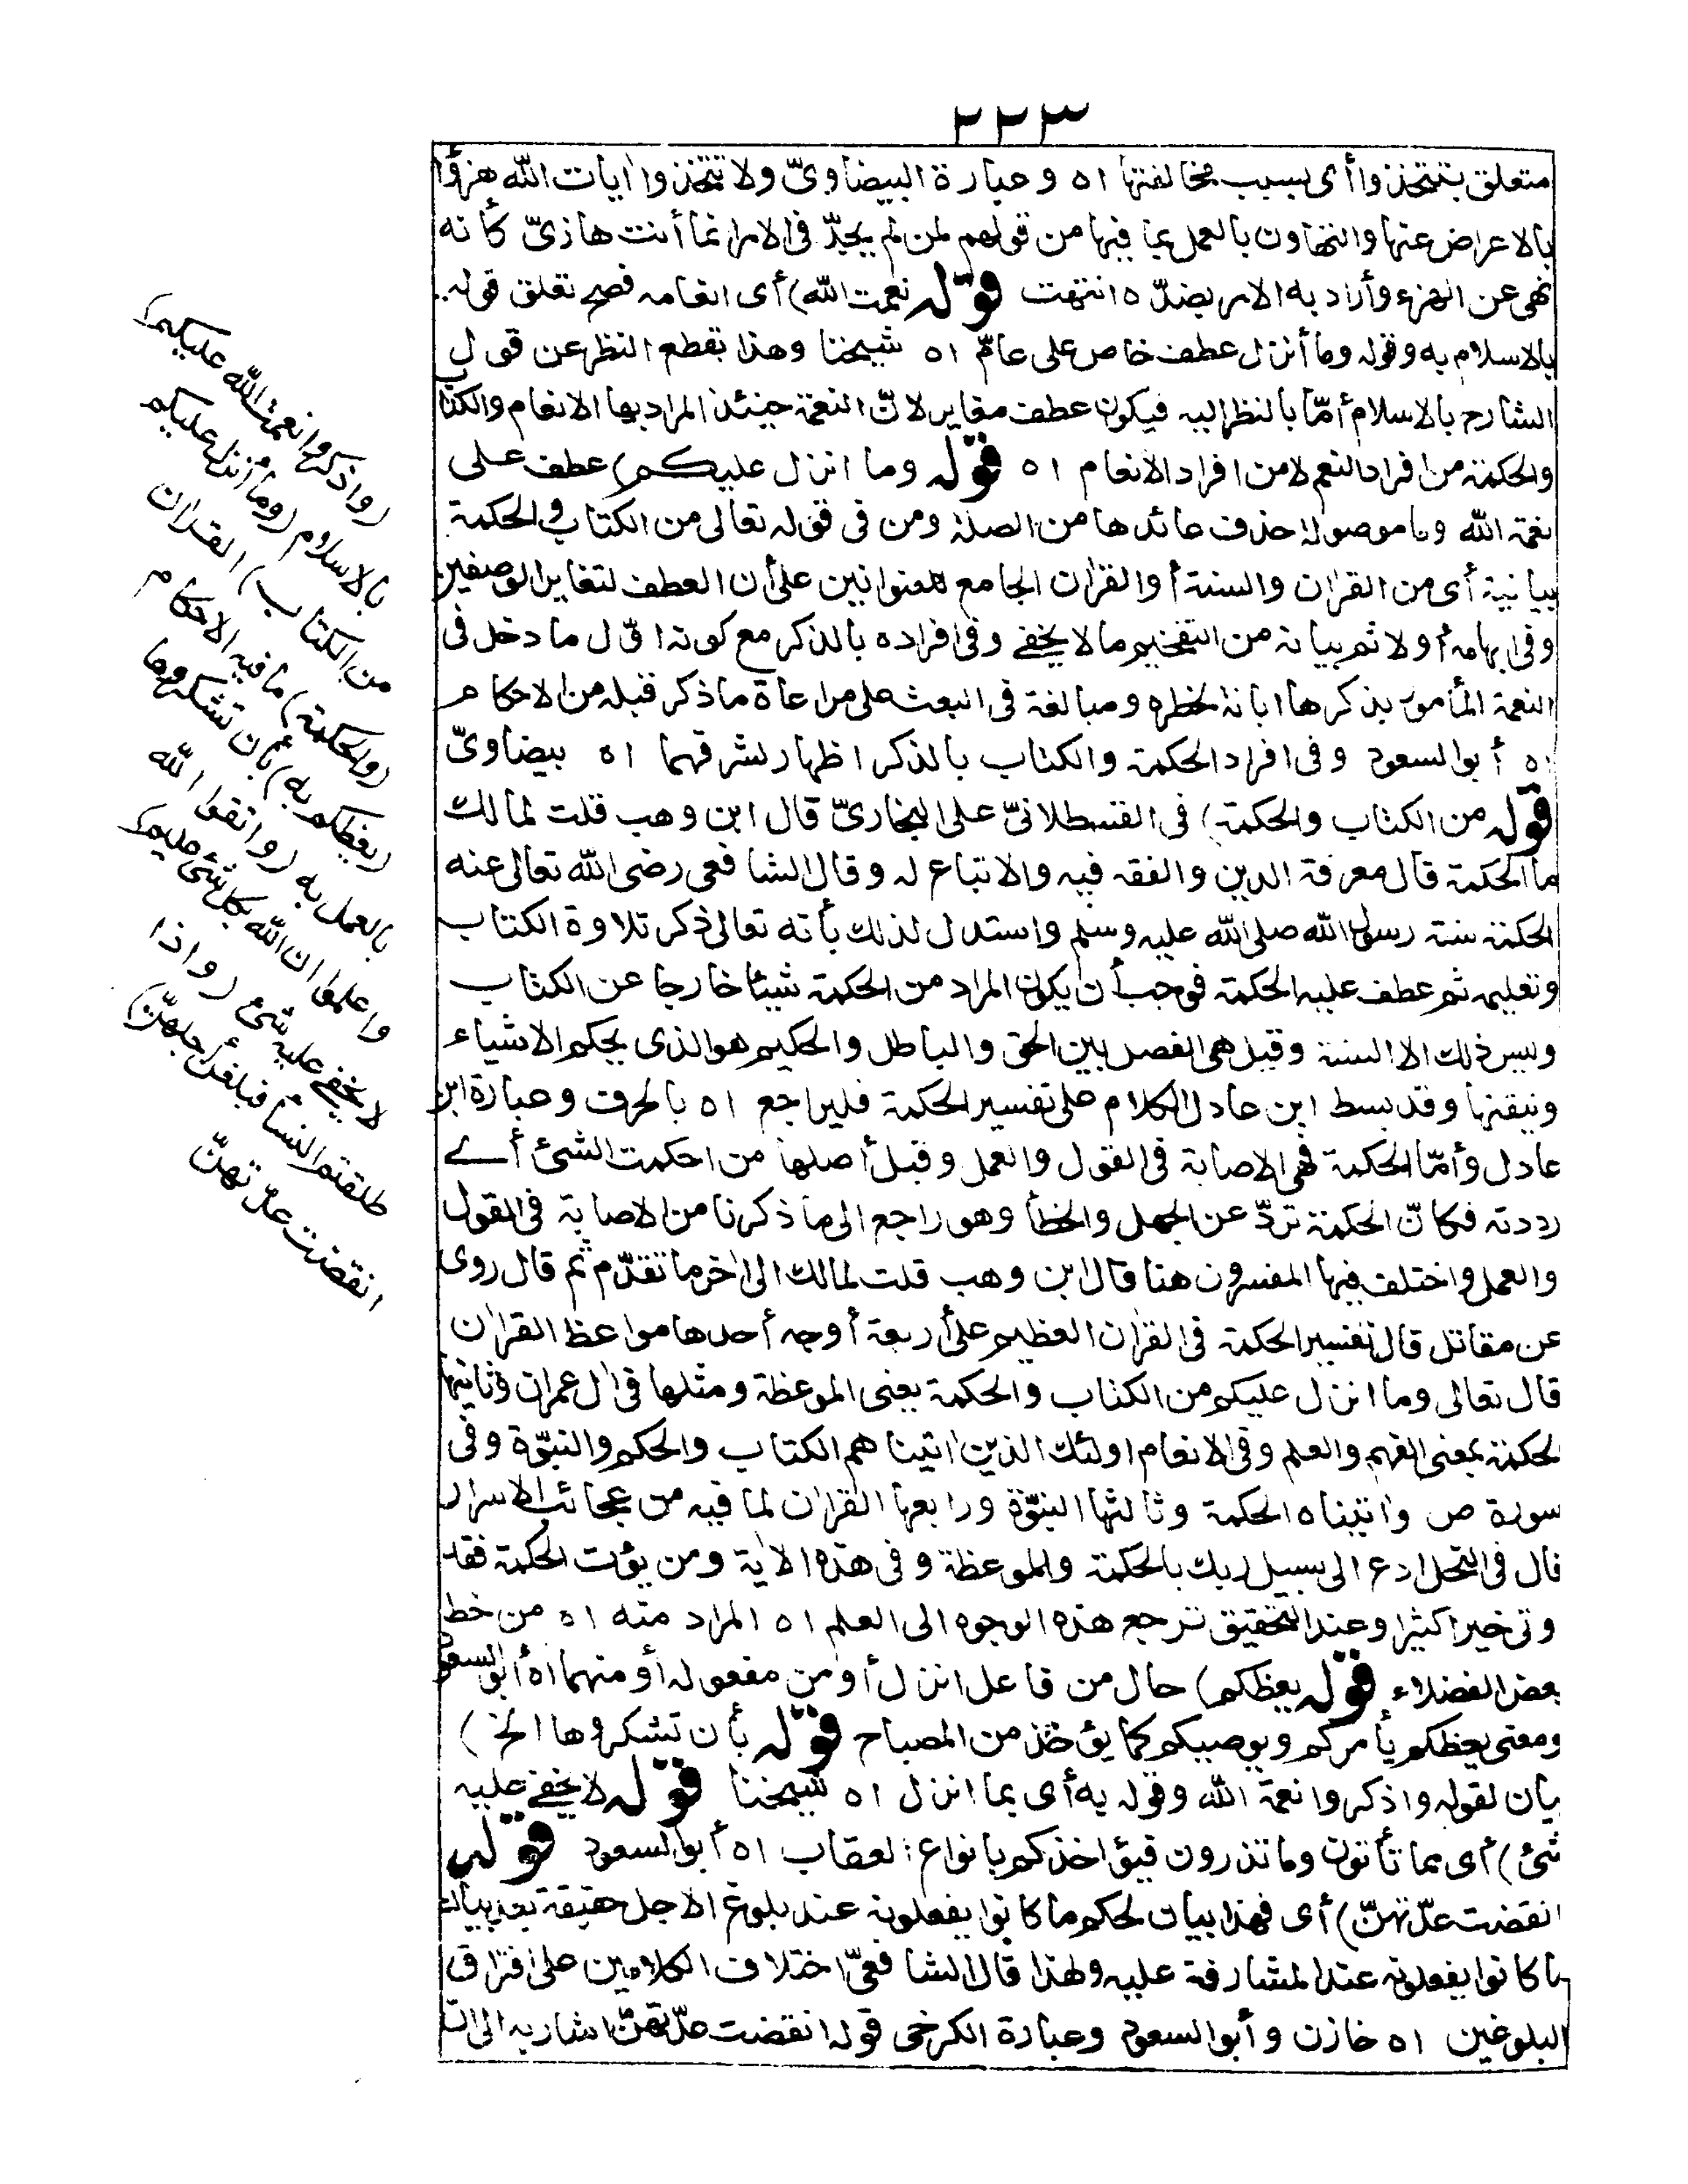 ٢٢٣
متعلق بتتخذوا أى بسبب مخالفتها اه وعبارة البيضاوىّ ولا تتخذوا ايات الله هزؤا
بالاعراض عنها والتهاون بالعمل بما فيها من قولهم لمن لم يجدّ فى الامر انما أنت هازئ كأنه
نهى عن الهزء وأراد به الامر بضدّه انتهت قوله نعمت الله) أى انعامه فصح تعلق قوله
بالاسلام به وقوله وما أنزل عطف خاص على عامّ اه شيخنا وهذا بقطع النظر عن قول
الشارح بالاسلام أمّا بالنظر اليه فيكون عطف مغاير لانّ النعمة حينئذ المراد بها الانعام والكتاب
والحكمة من افراد النعم لا من افراد الانعام اه قوله وما انزل عليكم) عطف على
نعمة الله وما موصولة حذف عائدها من الصلة ومن فى قوله تعالى من الكتاب والحكمة
بيانية أى من القران والسنة أو القران الجامع للعنوانين على أن العطف لتغاير الوصفين
وفى ابهامه أولا ثم بيانه من التفخيم ما لا يخفى وفى افراده بالذكر مع كونه اوّل ما دخل فى
النعمة المأمور بذكرها ابانة لخطره ومبالغة فى البعث على مراعاة ما ذكر قبله من الاحكام
اه أبو السعود وفى افراد الحكمة والكتاب بالذكر اظهار لشرفهما اه بيضاوىّ
قوله من الكتاب والحكمة) فى القسطلانىّ على البخارىّ قال ابن وهب قلت لمالك
ما الحكمة قال معرفة الدين والفقه فيه والاتباع له وقال الشافعى رضى الله تعالى عنه
الحكمة سنة رسول الله صلى الله عليه وسلم واستدل لذلك بأنه تعالى ذكر تلاوة الكتاب
وتعليمه ثم عطف عليه الحكمة فوجب أن يكون المراد من الحكمة شيئا خارجا عن الكتاب
وليس ذلك الا السنة وقيل هى الفصل بين الحق والباطل والحكيم هو الذى يحكم الاشياء
ويتقنها وقد بسط ابن عادل الكلام على تفسير الحكمة فليراجع اه بالحرف وعبارة ابن
عادل وأمّا الحكمة فهى الاصابة فى القول والعمل وقيل أصلها من احكمت الشئ أى
رددته فكانّ الحكمة تردّ عن الجهل والخطأ وهو راجع الى ما ذكرنا من الاصابة فى القول
والعمل واختلف فيها المفسرون هنا قال ابن وهب قلت لمالك الى اخر ما تقدّم ثم قال روى
عن مقاتل قال تفسير الحكمة فى القران العظيم على أربعة أوجه أحدها مواعظ القران
قال تعالى وما انزل عليكم من الكتاب والحكمة يعنى الموعظة ومثلها فى ال عمران وثانيها
الحكمة بمعنى الفهم والعلم وفى الانعام اولئك الذين اتيناهم الكتاب والحكم والنبوّة وفى
سورة ص واتيناه الحكمة وثالثها النبوّة ورابعها القران لما فيه من عجائب الاسرار
قال فى النحل ادع الى سبيل ربك بالحكمة والموعظة وفى هذه الاية ومن يؤت الحكمة فقد
اوتى خيرا كثيرا وعند التحقيق ترجع هذه الوجوه الى العلم اه المراد منه اه من خط
بعض الفضلاء قوله يعظكم) حال من فاعل انزل أو من مفعوله أو منهما اه أبو السعود
ومعنى يعظكم يأمركم ويوصيكم كما يؤخذ من المصباح قوله بأن تشكروها الخ)
بيان لقوله واذكروا نعمة الله وقوله به أى بما انزل اه شيخنا قوله لا يخفى عليه
شئ) أى مما تأتون وما تذرون فيؤاخذكم بانواع العقاب اه أبو السعود قوله
انقضت عدّتهنّ) أى فهذا بيان لحكم ما كانوا يفعلونه عند بلوغ الاجل حقيقة بعد بيان
ما كانوا يفعلونه عند المشارفة عليه ولهذا قال الشافعىّ اختلاف الكلامين على افتراق
البلوغين اه خازن وأبو السعود وعبارة الكرخى قوله انقضت عدّتهنّ اشار به الى انّ
(واذكروا نعمت الله عليكم)
بالاسلام (وما أنزل عليكم
من الكتاب) القران
(والحكمة) ما فيه الاحكام
(يعظكم به) بأن تشكروها
بالعمل به (واتقوا الله
واعلموا ان الله بكل شئ عليم)
لا يخفى عليه شئ (واذا
طلقتم النساء فبلغن أجلهنّ)
انقضت عدّتهنّ